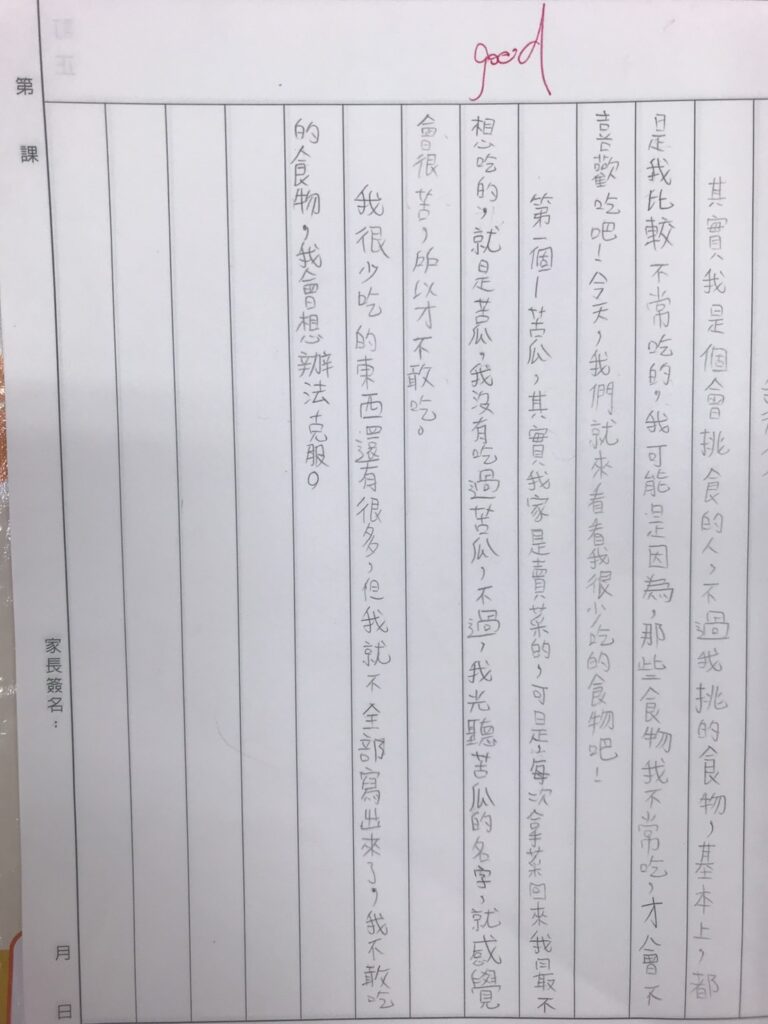 訂正
good
第 課
其實我是個會挑食的人，不過我挑的食物，基本上，都
是我比較不常吃的，我可能是因為，那些食物我不常吃，才會不
喜歡吃吧！今天，我們就來看看我很少吃的食物吧！
第一個－苦瓜，其實我家是賣菜的，可是，每次拿菜回來我最不
想吃的，就是苦瓜，我沒有吃過苦瓜，不過，我光聽苦瓜的名字，就感覺
會很苦，所以才不敢吃。
我很少吃的東西還有很多，但我就不全部寫出來了，我不敢吃
的食物，我會想辦法克服。
家長簽名：
月 日